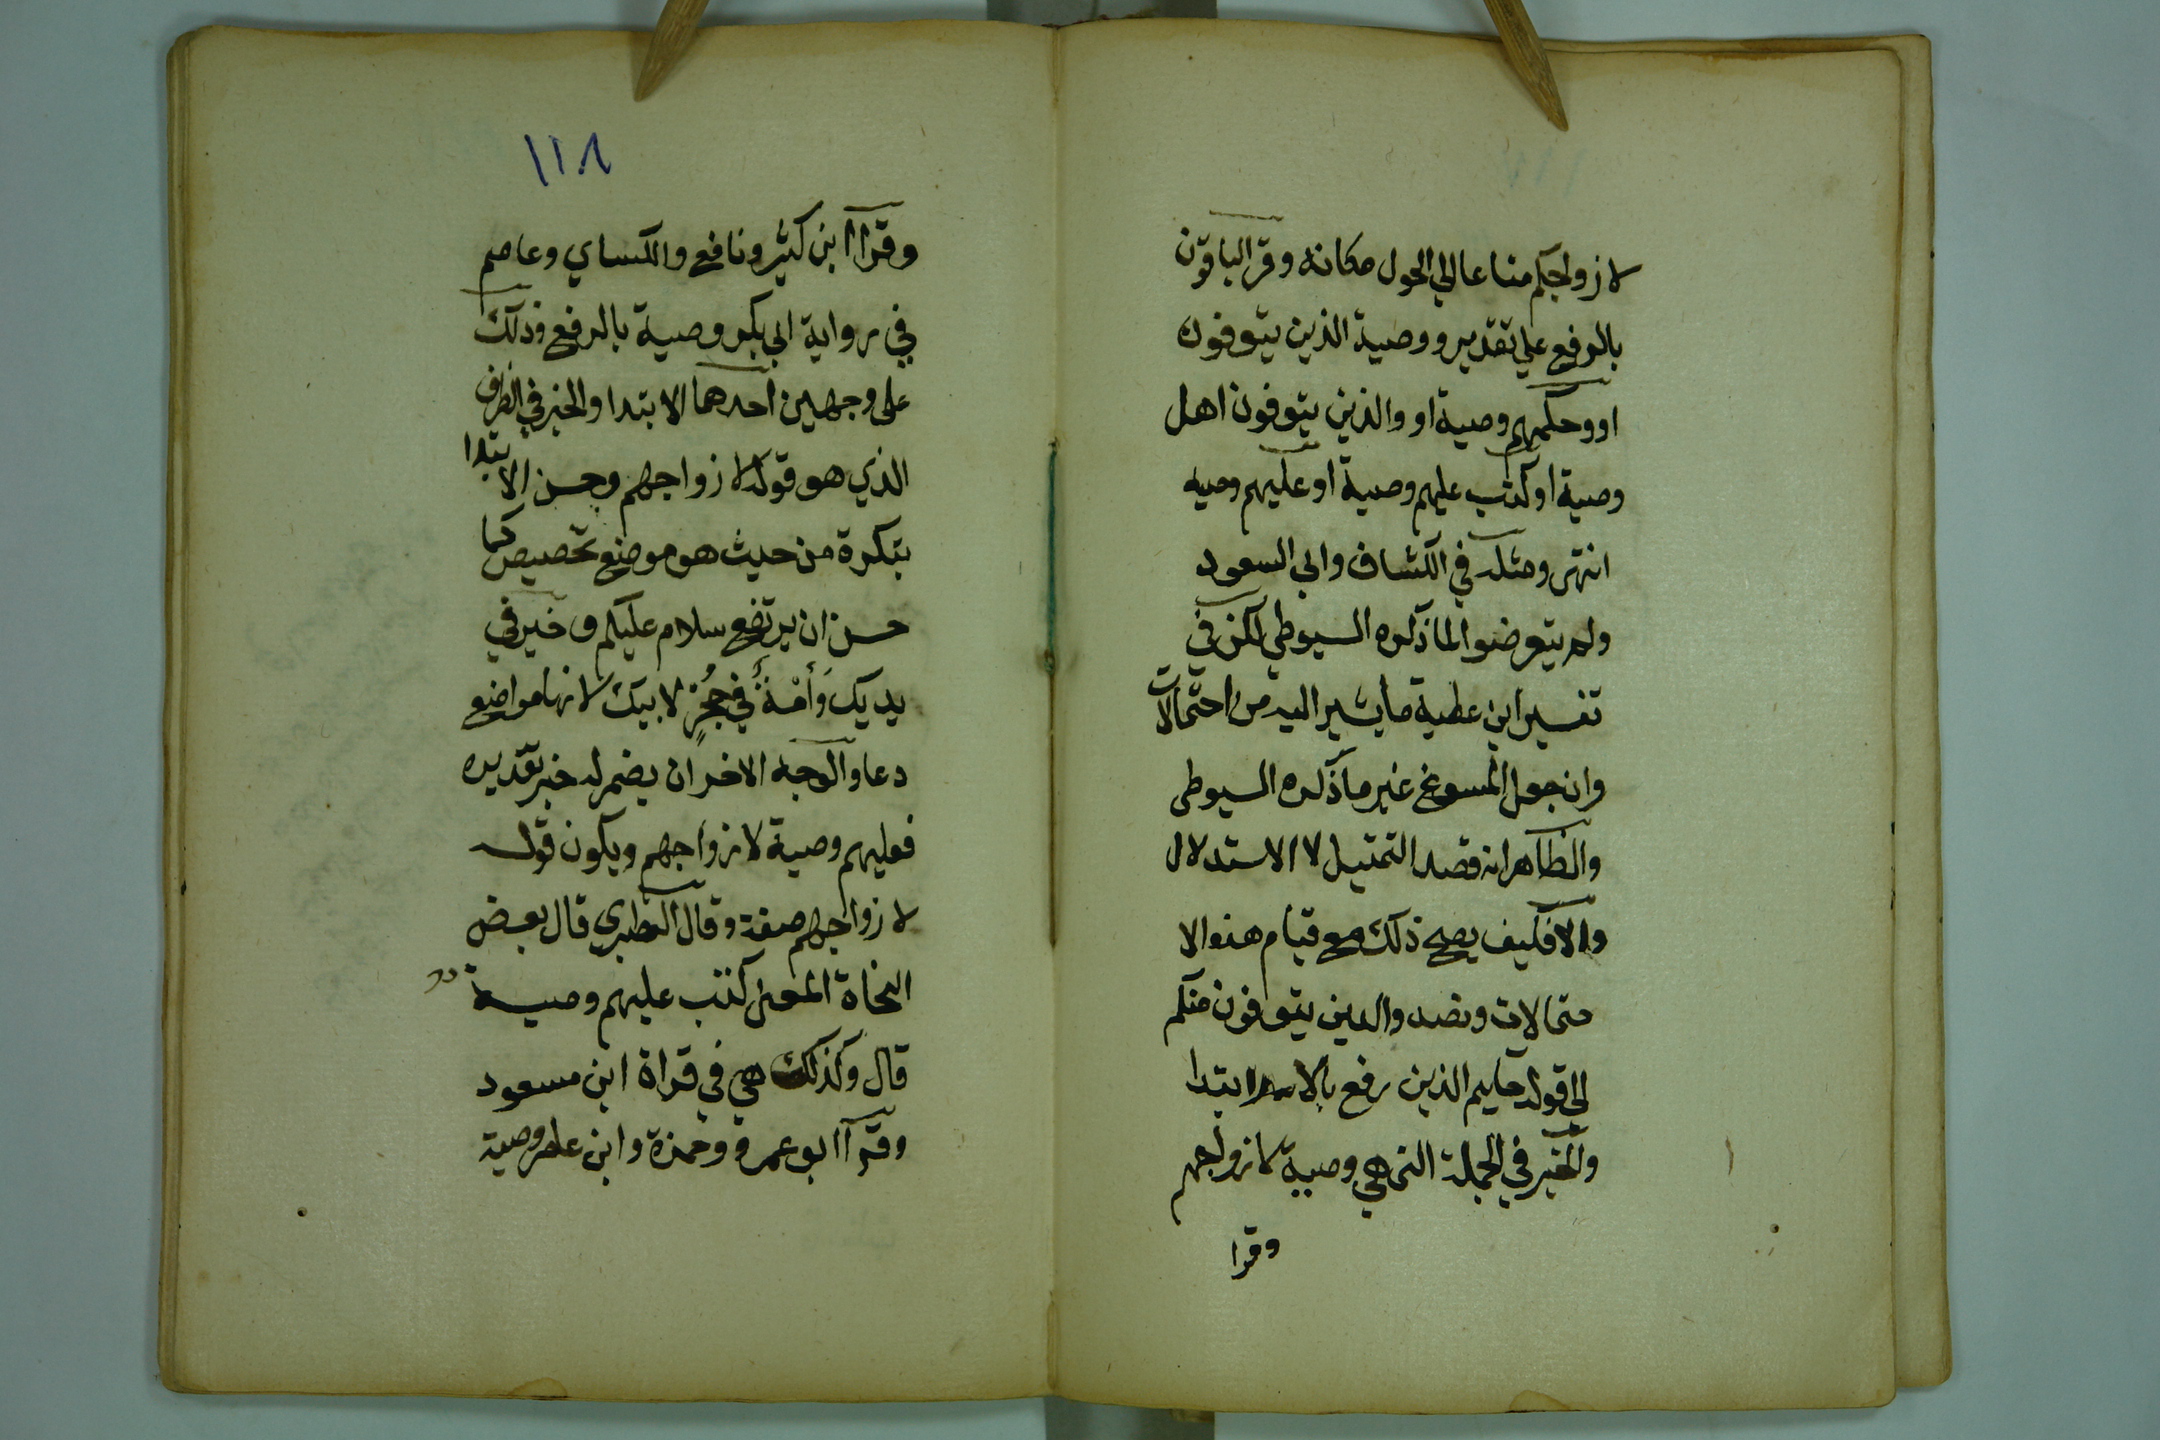 لازواجكم متاعا الي الحول مكانه وقرا الباقون
بالرفع علي تقدير ووصية الذين يتوفون
او وحكمهم وصية او والذين يتوفون اهل
وصية او كتب عليهم وصية او عليهم وصيه
انتهي ومثله في الكشاف وابي السعود
ولم يتعرضوا لما ذكره السيوطي لكن في
تفسير ابن عطية ما يشير اليه من احتمالات
وان جعل المسوغ غير ما ذكره السيوطي
والظاهر انه قصد التمثيل لا الاستدلال
والا فكيف يصح ذلك مع قيام هذه الا
حتمالات ونصه والدين يتوفون منكم
الي قوله حكيم الذين رفع بالا بتدا
والخبر في الجملة التي هي وصية لازواجهم
وقرا
١١٨
وقرا ابن كثير ونافع والكساي وعاصم
في رواية ابي بكر وصية بالرفع وذلك
على وجهين احدهما الابتدا والخبر في الظرف
الذي هو قوله لازواجهم وحسن الابتدا
بنكرة من حيث هو موضع تخصيص كما
حسن ان يرتفع سلام عليكم وخير في
يديك وَأَمْةٌ في حُجُرٍ لابيك لانها مواضع
دعا والوجه الاخر ان يضمر له خبر تقديره
فعليهم وصية لازواجهم ويكون قوله
لازواجهم صفة وقال الطبري قال بعض
النحاة المعنى كتب عليهم وصية
قال وكذلك هي في قراة ابن مسعود
وقرا ابو عمرو وحمزة وابن عامر وصية